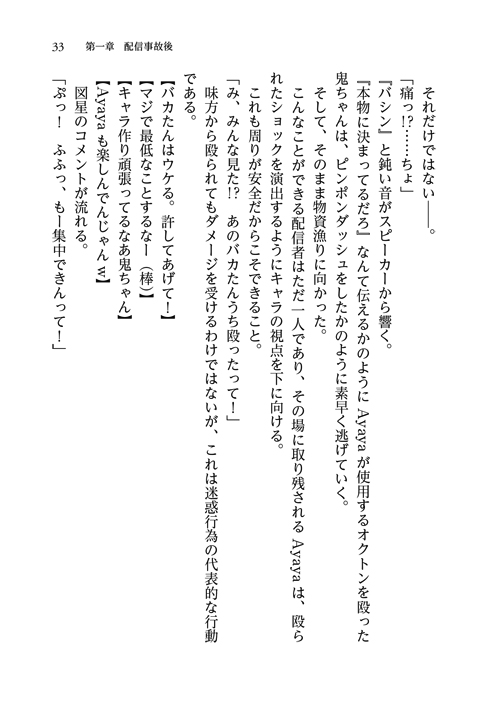 33　第一章　配信事故後
　それだけではない――。
「痛っ!?……ちょ」
『バシン』と鈍い音がスピーカーから響く。
『本物に決まってるだろ』なんて伝えるかのように Ayaya が使用するオクトンを殴った
鬼ちゃんは、ピンポンダッシュをしたかのように素早く逃げていく。
　そして、そのまま物資漁りに向かった。
　こんなことができる配信者はただ一人であり、その場に取り残される Ayaya は、殴ら
れたショックを演出するようにキャラの視点を下に向ける。
　これも周りが安全だからこそできること。
「み、みんな見た!?　あのバカたんうち殴ったって！」
　味方から殴られてもダメージを受けるわけではないが、これは迷惑行為の代表的な行動
である。
【バカたんはウケる。許してあげて！】
【マジで最低なことするなー（棒）】
【キャラ作り頑張ってるなあ鬼ちゃん】
【Ayaya も楽しんでんじゃんｗ】
　図星のコメントが流れる。
「ぷっ！　ふふっ、もー集中できんって！」